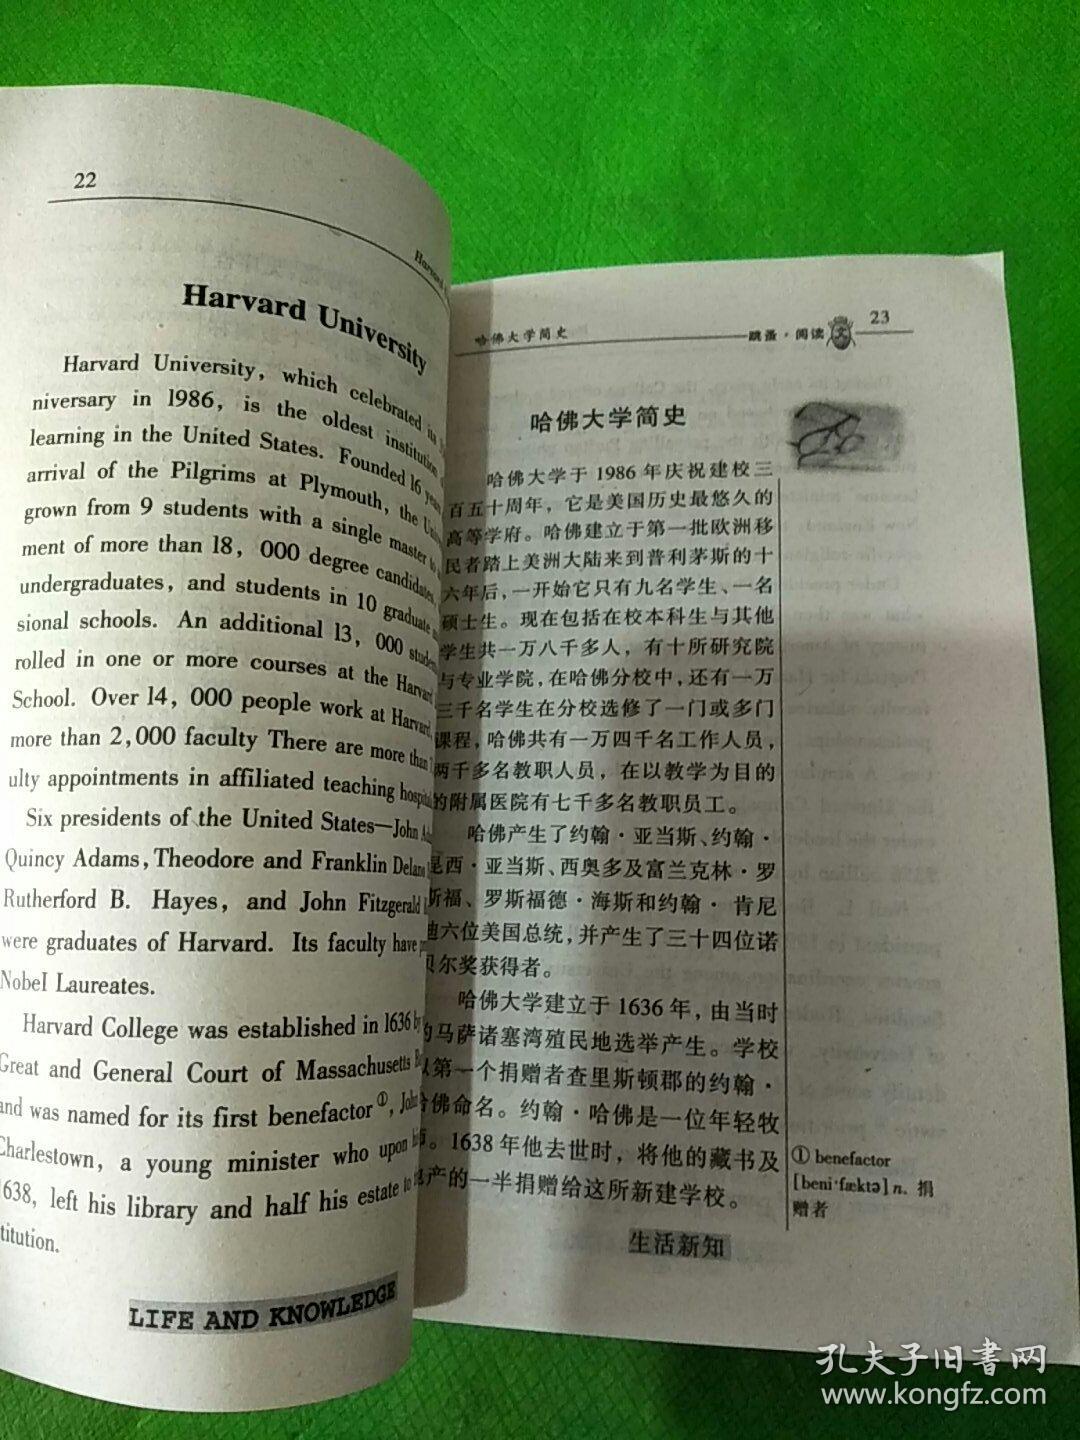 22
Harvard
Harvard University
Harvard University, which celebrated its
niversary in 1986, is the oldest institution
learning in the United States. Founded 16 years
arrival of the Pilgrims at Plymouth, the
grown from 9 students with a single master to
ment of more than 18, 000 degree candidates,
undergraduates, and students in 10 graduate
sional schools. An additional 13, 000
rolled in one or more courses at the Harvard
School. Over 14, 000 people work at Harvard,
more than 2,000 faculty There are more than
ulty appointments in affiliated teaching
Six presidents of the United States—John
Quincy Adams, Theodore and Franklin Delano
Rutherford B. Hayes, and John Fitzgerald
were graduates of Harvard. Its faculty have
Nobel Laureates.
Harvard College was established in 1636 by
Great and General Court of Massachusetts
and was named for its first benefactor①, John
Charlestown, a young minister who upon
1638, left his library and half his estate to
titution.
LIFE AND KNOWLEDGE
哈佛大学简史
跳蚤·阅读
文
23
哈佛大学简史
哈佛大学于 1986 年庆祝建校三
百五十周年，它是美国历史最悠久的
高等学府。哈佛建立于第一批欧洲移
民者踏上美洲大陆来到普利茅斯的十
六年后，一开始它只有九名学生、一名
硕士生。现在包括在校本科生与其他
学生共一万八千多人，有十所研究院
与专业学院，在哈佛分校中，还有一万
三千名学生在分校选修了一门或多门
课程，哈佛共有一万四千名工作人员，
两千多名教职人员，在以教学为目的
的附属医院有七千多名教职员工。
哈佛产生了约翰·亚当斯、约翰·
昆西·亚当斯、西奥多及富兰克林·罗
斯福、罗斯福德·海斯和约翰·肯尼
迪六位美国总统，并产生了三十四位诺
贝尔奖获得者。
哈佛大学建立于 1636 年，由当时
的马萨诸塞湾殖民地选举产生。学校
以第一个捐赠者查里斯顿郡的约翰·
哈佛命名。约翰·哈佛是一位年轻牧
师。1638 年他去世时，将他的藏书及
产的一半捐赠给这所新建学校。
① benefactor
[beni'fæktə] n. 捐
赠者
生活新知
孔夫子旧书网
www.kongfz.com